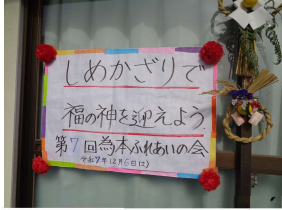 しめかざりで
福の神を迎えよう
第7回為本ふれあいの会
令和7年12月6日(土)